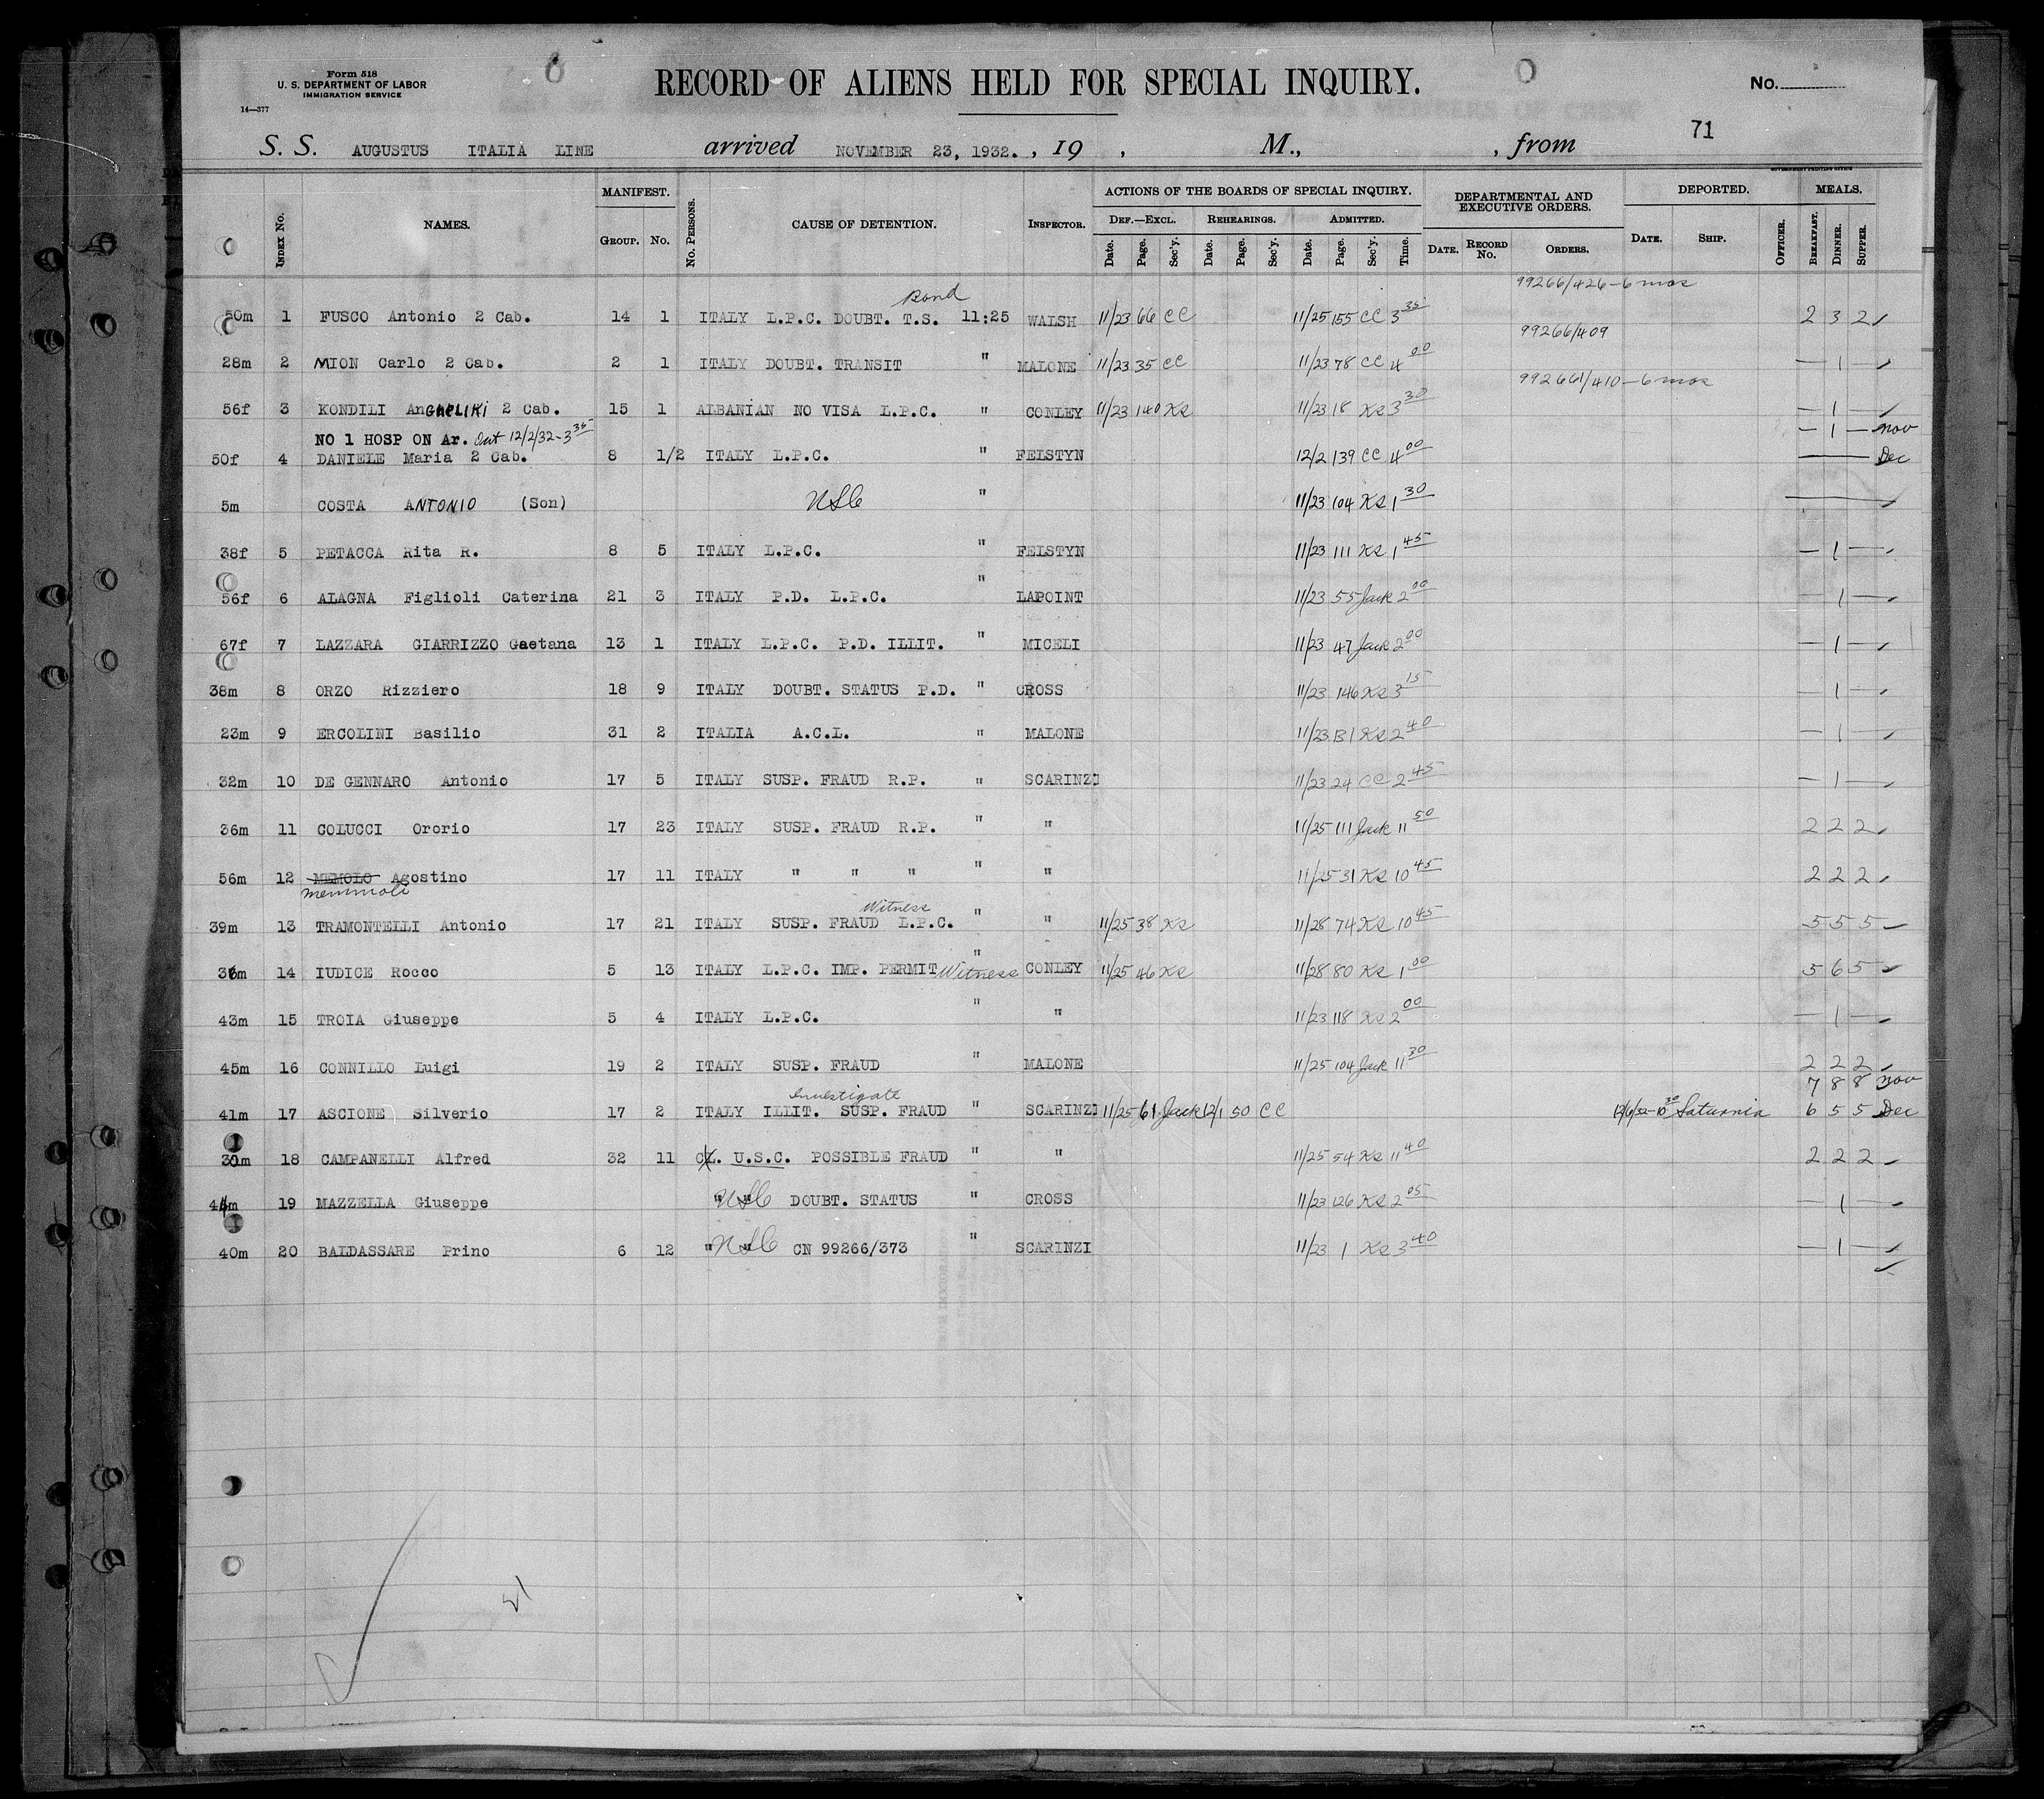 Form 518
U. S. DEPARTMENT OF LABOR
IMMIGRATION SERVICE
14—377
RECORD OF ALIENS HELD FOR SPECIAL INQUIRY.
No.
71
S. S. AUGUSTUS ITALIA LINE arrived NOVEMBER 23, 1932. , 19 , M., , from
GOVERNMENT PRINTING OFFICE
INDEX No. NAMES. MANIFEST. GROUP. No. No. PERSONS. CAUSE OF DETENTION. INSPECTOR. ACTIONS OF THE BOARDS OF SPECIAL INQUIRY. DEPARTMENTAL AND EXECUTIVE ORDERS. DEPORTED. MEALS.
DEF.—EXCL. REHEARINGS. ADMITTED.
Date. Page. Sec'y. Date. Page. Sec'y. Date. Page. Sec'y. Time. DATE. RECORD No. ORDERS. DATE. SHIP. OFFICER. BREAKFAST. DINNER. SUPPER.
99266/426-6 mos
Bond
50m 1 FUSCO Antonio 2 Cab. 14 1 ITALY L.P.C. DOUBT. T.S. 11:25 WALSH 11/23 66 CC 11/25 155 CC 3 35 2 3 2
99266/409
28m 2 MION Carlo 2 Cab. 2 1 ITALY DOUBT. TRANSIT " MALONE 11/23 35 CC 11/23 78 CC 4 00 — 1 —
99266/410-6 mos
56f 3 KONDILI AnGHELIKI 2 Cab. 15 1 ALBANIAN NO VISA L.P.C. " CONLEY 11/23 140 KS 11/23 18 KS 3 30 — 1 —
NO 1 HOSP ON Ar. Out 12/2/32-3 35 — 1 — Nov
50f 4 DANIELE Maria 2 Cab. 8 1/2 ITALY L.P.C. " FELSTYN 12/2 139 CC 4 00 — Dec
5m COSTA ANTONIO (Son) USC " 11/23 104 KS 1 30 —
38f 5 PETACCA Rita R. 8 5 ITALY L.P.C. " FELSTYN 11/23 111 KS 1 45 — 1 —
56f 6 ALAGNA Figlioli Caterina 21 3 ITALY P.D. L.P.C. " LAPOINT 11/23 55 Jack 2 00 — 1 —
67f 7 LAZZARA GIARRIZZO Gaetana 13 1 ITALY L.P.C. P.D. ILLIT. " MICELI 11/23 47 Jack 2 00 — 1 —
38m 8 ORZO Rizziero 18 9 ITALY DOUBT. STATUS P.D. " CROSS 11/23 146 KS 3 15 — 1 —
23m 9 ERCOLINI Basilio 31 2 ITALIA A.C.L. " MALONE 11/23 131 KS 2 40 — 1 —
32m 10 DE GENNARO Antonio 17 5 ITALY SUSP. FRAUD R.P. " SCARINZI 11/23 24 CC 2 45 — 1 —
36m 11 COLUCCI Ororio 17 23 ITALY SUSP. FRAUD R.P. " " 11/25 111 Jack 11 50 2 2 2
56m 12 MEMOLO Agostino 17 11 ITALY " " " " " 11/25 31 KS 10 45 2 2 2
Memmoli
Witness
39m 13 TRAMONTELLI Antonio 17 21 ITALY SUSP. FRAUD L.P.C. " " 11/25 38 KS 11/28 74 KS 10 45 5 5 5
14 IUDICE Rocco 5 13 ITALY L.P.C. IMP. PERMIT Witness " CONLEY 11/25 46 KS 11/28 80 KS 1 00 5 6 5
43m 15 TROIA Giuseppe 5 4 ITALY L.P.C. " " 11/23 118 KS 2 00 — 1 —
45m 16 CONNILLO Luigi 19 2 ITALY SUSP. FRAUD " MALONE 11/25 104 Jack 11 30 2 2 2
Investigate 7 8 8 Nov
41m 17 ASCIONE Silverio 17 2 ITALY ILLIT. SUSP. FRAUD " SCARINZI 11/25 61 Jack 12/1 50 CC 12/6/32-10 30 Saturnia 6 5 5 Dec
18 CAMPANELLI Alfred 32 11 U.S.C. POSSIBLE FRAUD " " 11/25 54 KS 11 40 2 2 2
19 MAZZELLA Giuseppe " " USC DOUBT. STATUS " CROSS 11/23 126 KS 2 05 — 1 —
40m 20 BALDASSARE Prino 6 12 " " USC CN 99266/373 " SCARINZI 11/23 1 KS 3 40 — 1 —
21